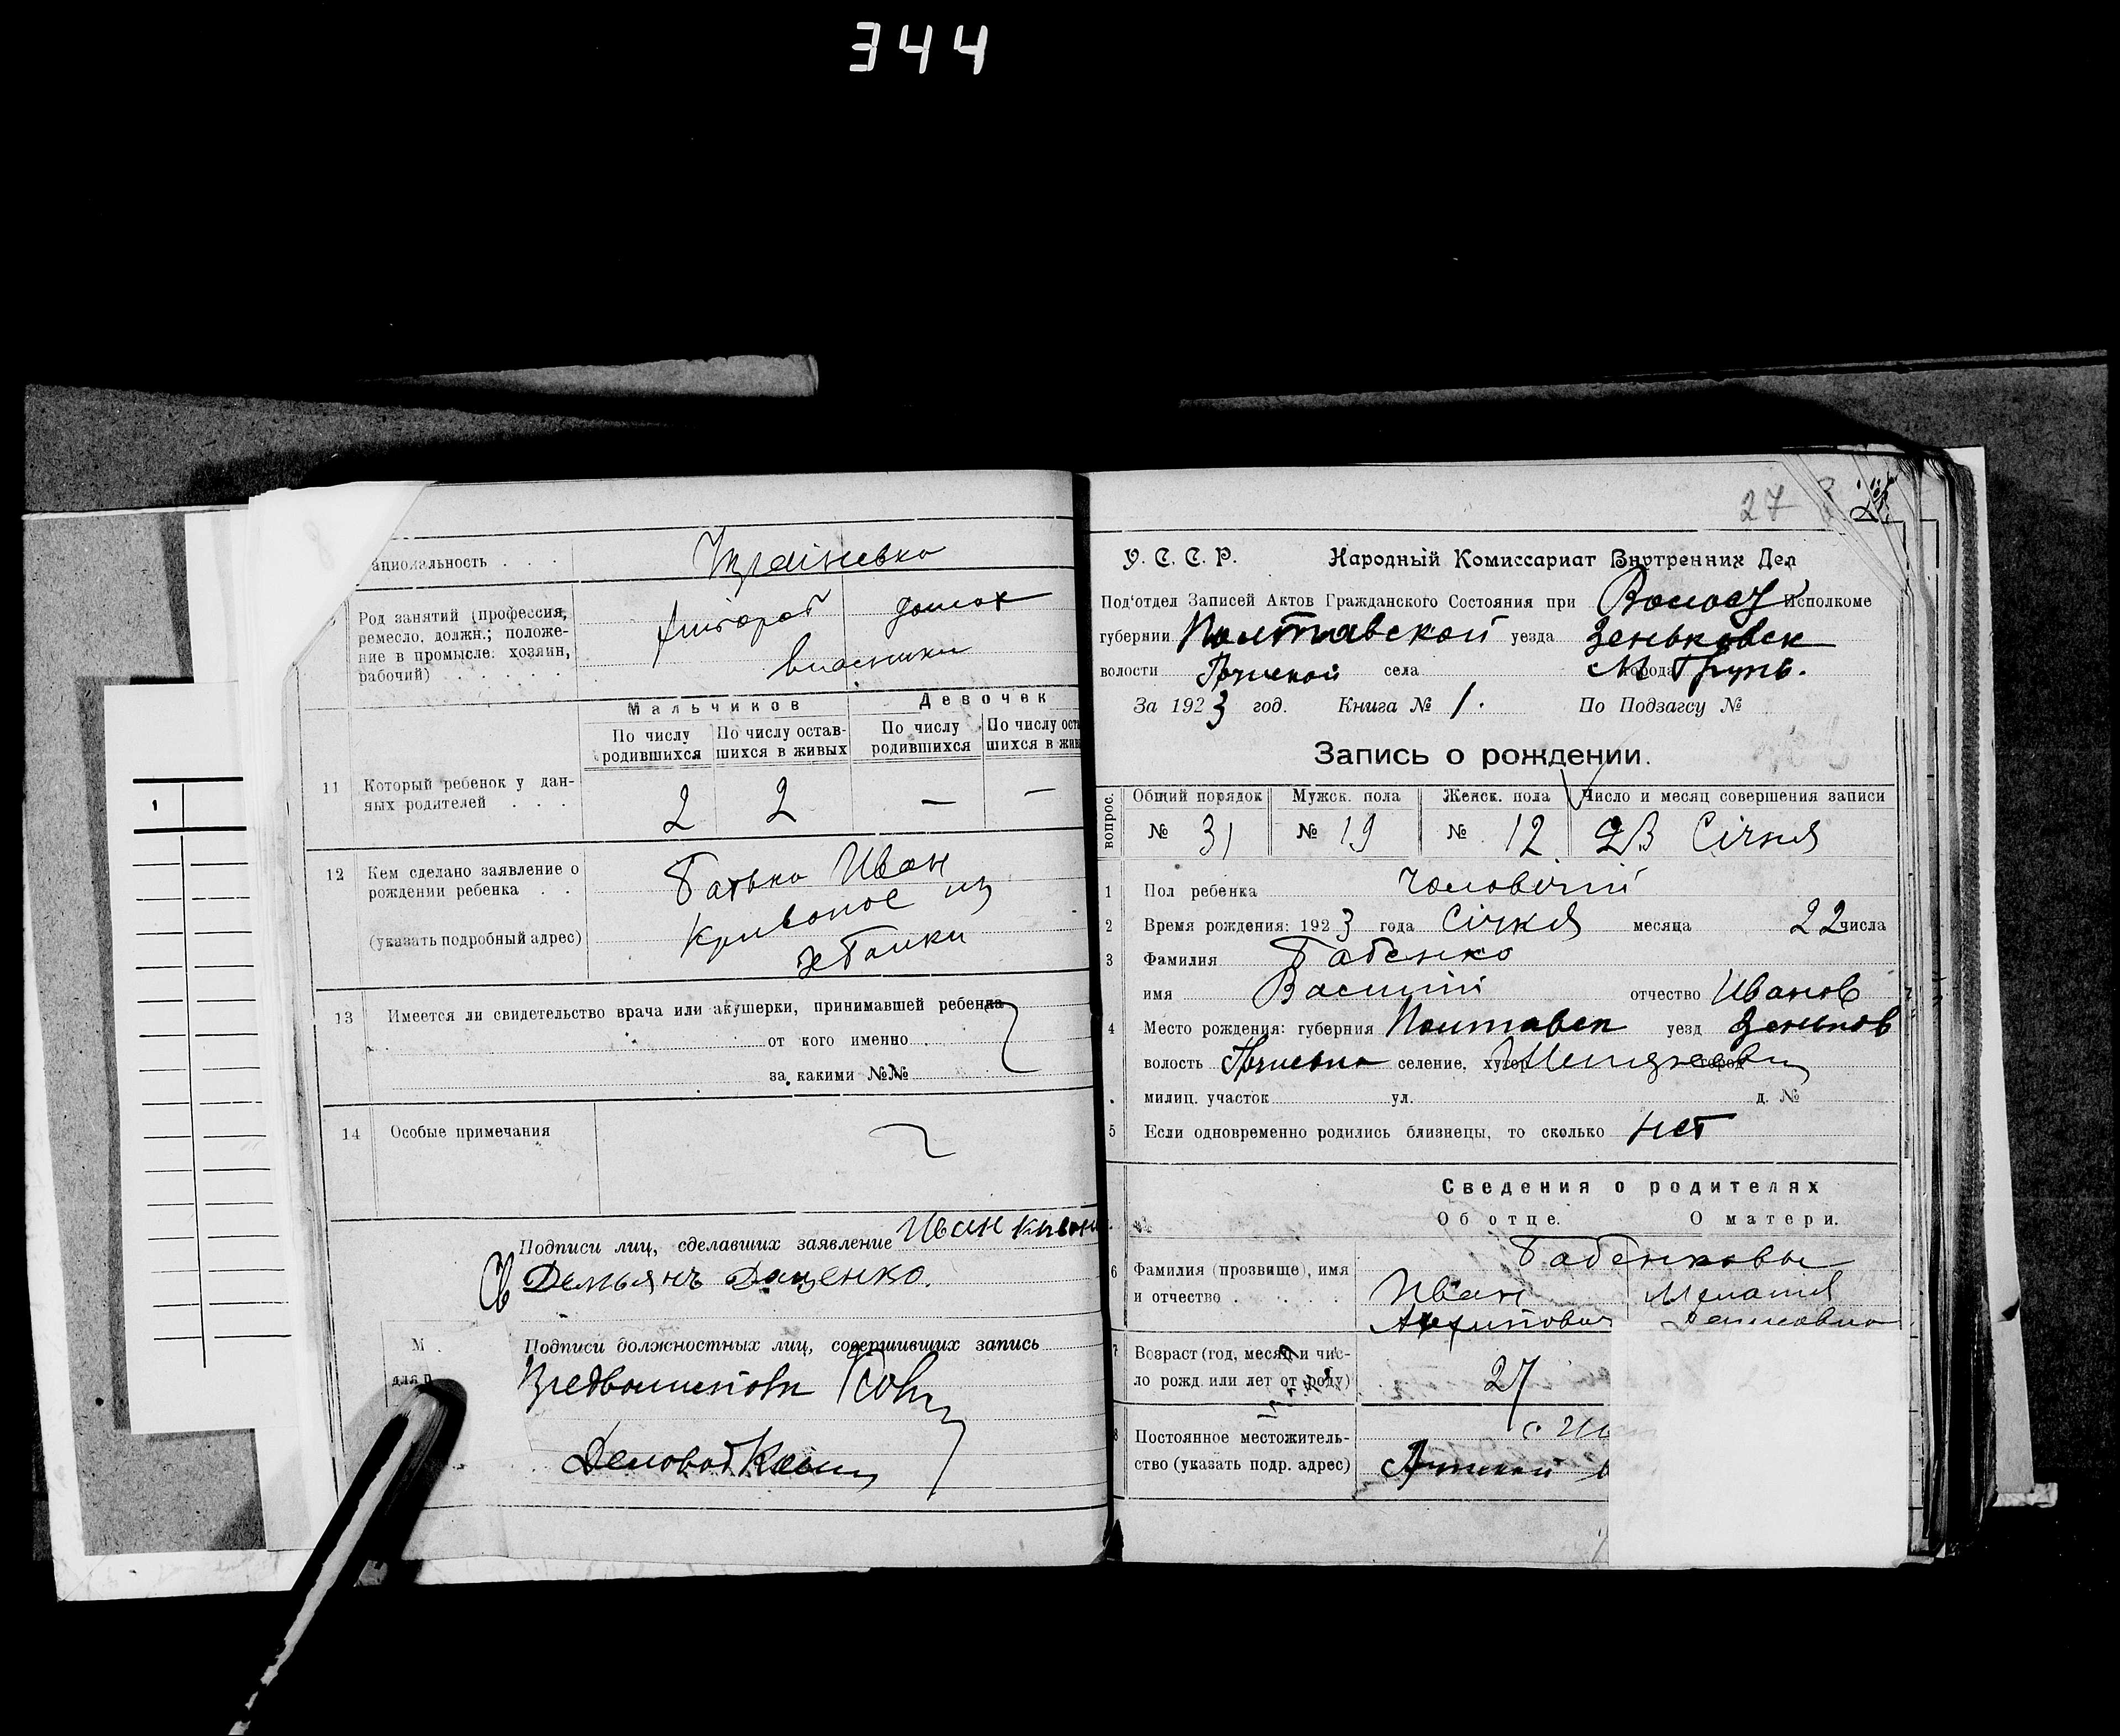 344
ациональность . . . Украінська
Род занятий (профессия,
ремесло, должн.; положе-
ние в промысле: хозяин,
рабочий) . . . . . .
хлібороб домох
власники
Мальчиков Девочек
По числу родившихся По числу остав-шихся в живых По числу родившихся По числу оста шихся в жив
11 Который ребенок у дан-
ных родителей . . . 2 2 — —
12 Кем сделано заявление о
рождении ребенка . . Батько Иван
(указать подробный адрес)
из
13 Имеется ли свидетельство врача или акушерки, принимавшей ребенка
от кого именно
за какими №№
14 Особые примечания
Подписи лиц, сделавших заявление Иван
Св Демьянъ Даценко.
М.
для п
Подписи должностных лиц, совершивших запись
Деловод
27
У. С. С. Р. Народный Комиссариат Внутренних Дел
Под'отдел Записей Актов Гражданского Состояния при Исполкоме
губернии Полтавской уезда Зеньковск
волости села города М Грунь.
За 1923 год. Книга № 1. По Подзагсу №
Запись о рождении.
вопрос. Общий порядок Мужск. пола Женск. пола Число и месяц совершения записи
№ 31 № 19 № 12 23 Січня
1 Пол ребенка Чоловічий
2 Время рождения: 1923 года Січня месяца 22 числа
3 Фамилия Бабенко
имя Василий отчество Иванов
4 Место рождения: губерния Полтавск уезд Зеньков
волость селение, хутор город
милиц. участок ул. д. №
5 Если одновременно родились близнецы, то сколько нет
Сведения о родителях
Об отце. О матери.
Бабенковы
6 Фамилия (прозвище), имя
и отчество . . . . . Иван Мелания
7 Возраст (год, месяц и чис-
ло рожд. или лет от роду) 27
8 Постоянное местожитель-
ство (указать подр. адрес)